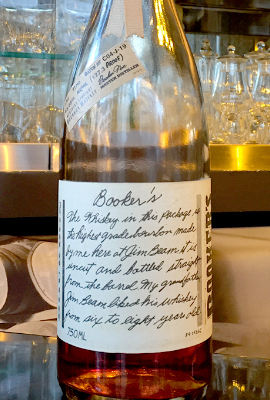 C04-J-19
PROOF)
Booker Noe
MASTER DISTILLER
Booker's
The Whiskey in this package is
the highest grade bourbon made
by me here at Jim Beam it is
uncut and bottled straight
from the barrel. My grandfather
Jim Beam liked his whiskey
from six to eight years old
750ML